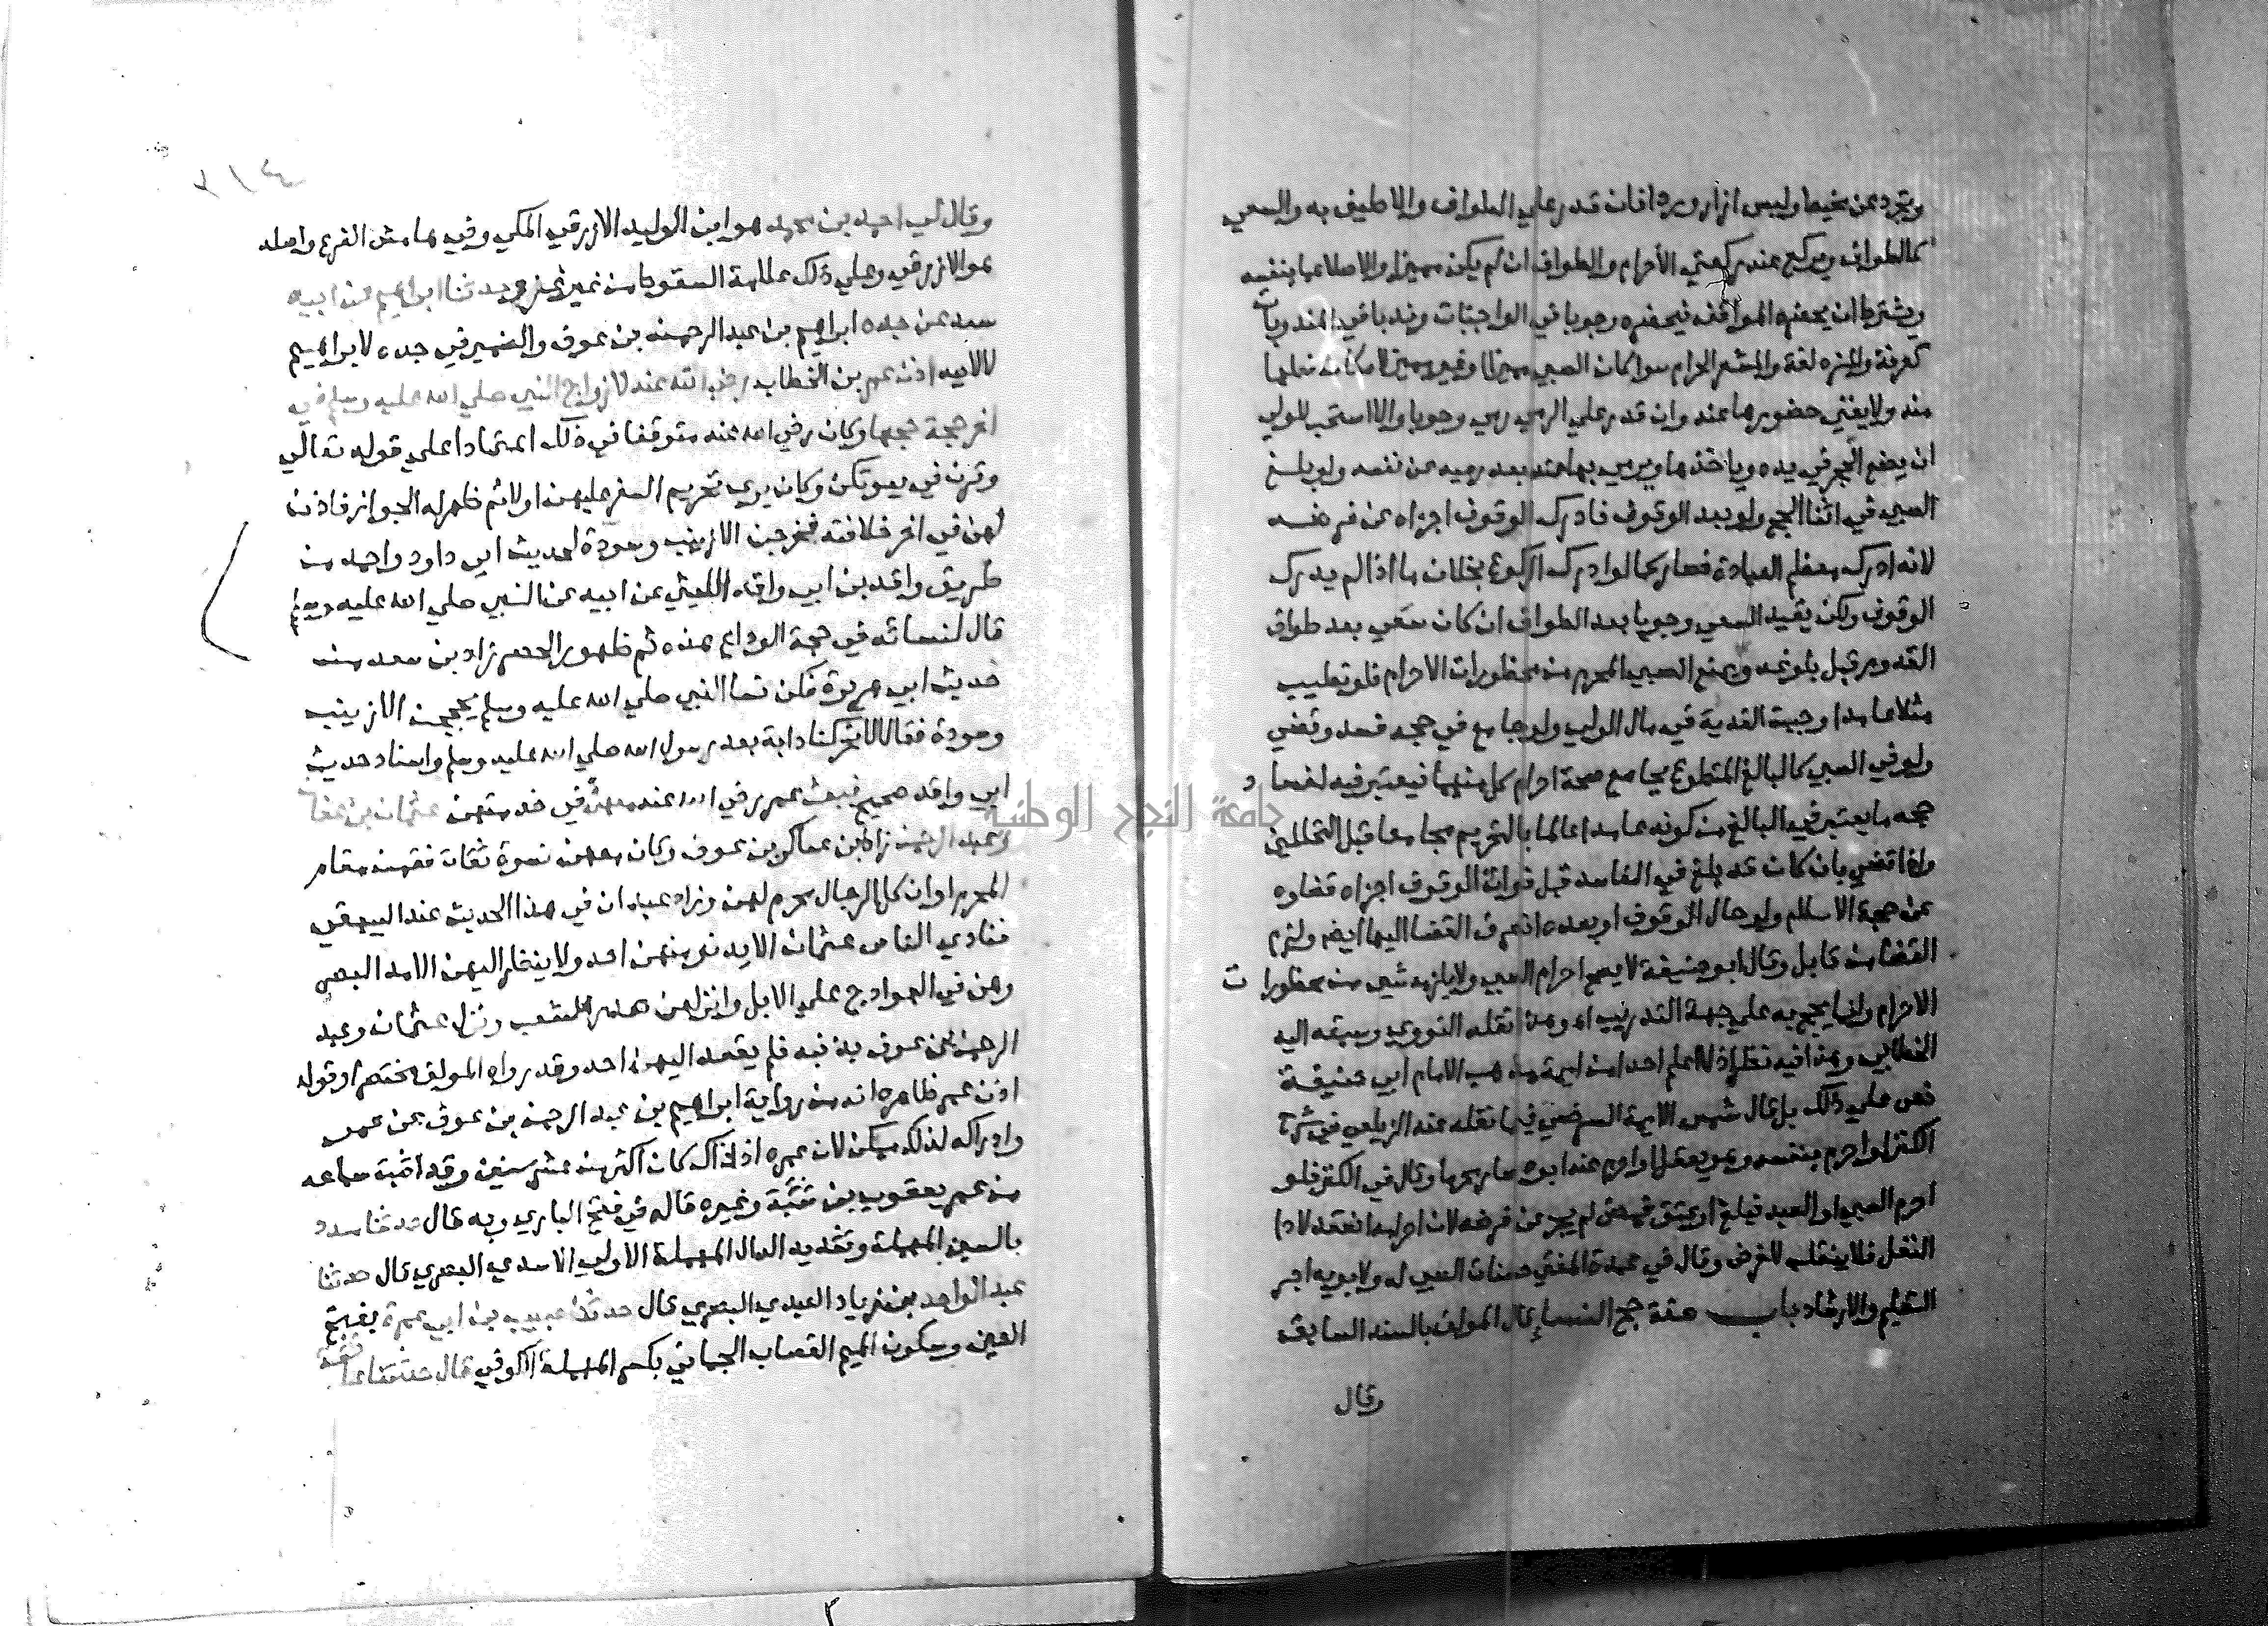 ويجرد عن مخيط وليس ازار وردا فان قدر علي الطواف والا طيف به والسعي
كالطواف ويركع عنه ركعتي الاحرام والطواف ان لم يكن مميزا والا صلاهما بنفسه
ويشترط ان يحضره المواقف فيحضره وجوبا في الواجبات وندبا في المندوبات
كعرفة والمزدلفة والمشعر الحرام سوا كان الصبي مميزا او غير مميز لامكان فعلها
منه ولا يغني حضورها عنه وان قدر علي الرمي رمي وجوبا والا استحب للولي
ان يضع الحجر في يده وياخذها ويرمي بها عنه بعد رميه عن نفسه ولو بلغ
الصبي في اثنا الحج ولو بعد الوقوف فادرك الوقوف اجزاه عن فرضه
لانه ادرك معظم العبادة فصار كما لو ادرك الركوع بخلاف ما اذا لم يدرك
الوقوف ولكن يعيد السعي وجوبا بعد الطواف ان كان سعي بعد طواف
القدوم قبل بلوغه ويمنع الصبي المحرم من محظورات الاحرام فلو تطيب
مثلا عامدا وجبت الفدية في مال الولي ولو جامع في حجه فسد وقضي
ولو في الصبي كالبالغ المتطوع بجامع صحة احرام كل منهما فيعتبر فيه لفساد
حجه ما يعتبر في البالغ من كونه عامدا عالما بالتحريم مجامعا قبل التحللين
واذا قضي بان كان قد بلغ في الفاسد قبل فوات الوقوف اجزاه قضاوه
عن حجة الاسلام ولو حال الوقوف او بعده انصرف القضا اليها ايضا ولزم
القضا من قابل وقال ابو حنيفة لا يصح احرام الصبي ولا يلزمه شي من محظورات
الاحرام وانما يحج به علي جهة التدريب اه وهذا نقله النووي وسبقه اليه
الخطابي وهذا فيه نظر اذ لا اعلم احدا من ايمة مذهب الامام ابي حنيفة
نص علي ذلك بل قال شمس الايمة السرخسي فيما نقله عنه الزيلعي في شرح
الكنز لو احرم بنفسه وهو يعقل او احرم عنه ابوه صار محرما وقال في الكنز فلو
احرم الصبي او العبد فبلغ او عتق فمضي لم يجز عن فرضه لان احرامه انعقد لادا
النفل فلا ينقلب للفرض وقال في عمدة المفتي حسنات الصبي له ولابويه اجر
التعليم والارشاد باب صفة حج النساء قال المولف بالسند السابق
وقال
وقال لي احمد بن محمد هو ابن الوليد الازرقي المكي وفي هامش الفرع واصله
هو الازرقي وعلي ذلك علامة السقوط من غير عزو حدثنا ابراهيم عن ابيه
سعد عن جده ابراهيم بن عبد الرحمن بن عوف والضمير في جده لابراهيم
لا لابيه اذن عمر بن الخطاب رضي الله عنه لازواج النبي صلي الله عليه وسلم في
اخر حجة حجها وكان رضي الله عنه متوقفا في ذلك اعتمادا علي قوله تعالي
وقرن في بيوتكن وكان يري تحريم السفر عليهن اولا ثم ظهر له الجواز فاذن
لهن في اخر خلافته فخرجن الا زينب وسودة لحديث ابي داود واحمد من
طريق واقد بن ابي واقد الليثي عن ابيه عن النبي صلي الله عليه وسلم
قال لنسائه في حجة الوداع هذه ثم ظهور الحصر زاد بن سعد من
حديث ابي هريرة فكن نسا النبي صلي الله عليه وسلم يحججن الا زينب
وسودة فقالا لا تحركنا دابة بعد رسول الله صلي الله عليه وسلم واسناد حديث
ابي واقد صحيح فبعث عمر رضي الله عنه معهن في خدمتهن عثمان بن عفان
وعبد الرحمن زاد بن عساكر بن عوف وكان معهن نسوة ثقات فقمن مقام
المحرم او ان كل الرجال محرم لهن وزاد عبدان في هذا الحديث عند البيهقي
فنادي الناس عثمان الا يدنو منهن احد ولا ينظر اليهن الا مد البصر
وهن في الهوادج علي الابل وانزلهن صدر الشعب ونزل عثمان وعبد
الرحمن بن عوف بذنبه فلم يقعد اليهن احد وقد رواه المولف مختصرا وقوله
اذن عمر ظاهره انه من رواية ابراهيم بن عبد الرحمن بن عوف عن عمر
وادراكه لذلك ممكن لان عمره اذ ذاك كان اكثر من عشر سنين وقد اثبت سماعه
من عمر يعقوب بن شيبة وغيره قاله في فتح الباري وبه قال حدثنا مسدد
بالسين المهملة وتشديد الدال المهملة الاولي الاسدي البصري قال حدثنا
عبد الواحد بن زياد العبدي البصري قال حدثنا حبيب بن ابي عمرة بفتح
العين وسكون الميم القصاب الحماني بكسر المهملة الكوفي قال حدثتنا عايشة
جامعة النجاح الوطنية